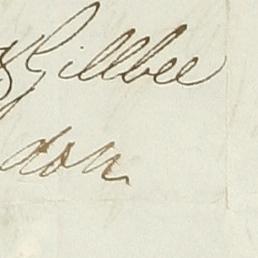 & Gillbee
don